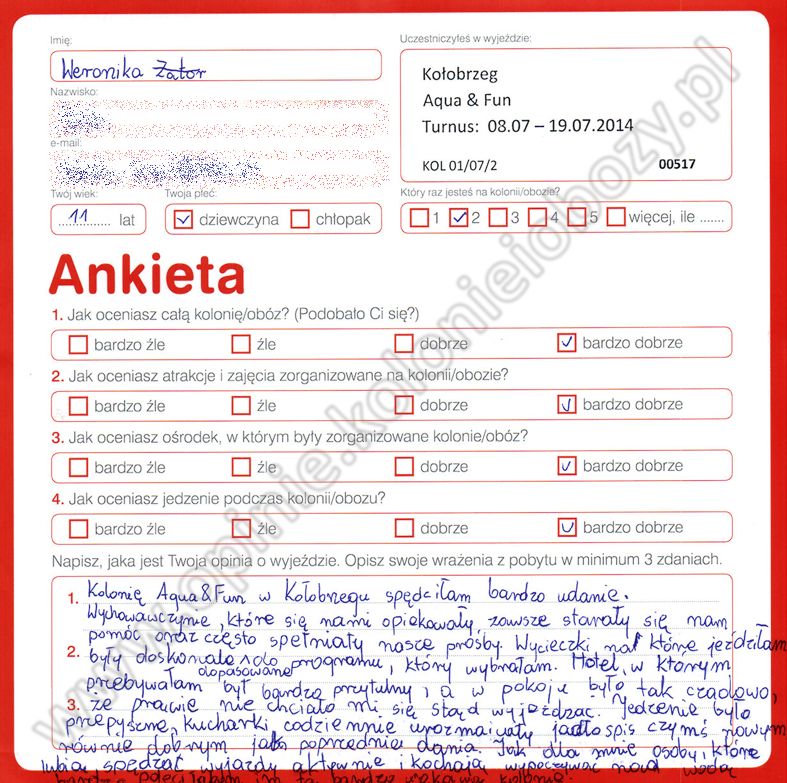 Imię:
Weronika Zator
Uczestniczyłeś w wyjeździe:
Kołobrzeg
Aqua & Fun
Turnus: 08.07 – 19.07.2014
KOL 01/07/2 00517
Nazwisko:
e-mail:
Twój wiek:
11 lat
Twoja płeć:
dziewczyna chłopak
Który raz jesteś na kolonii/obozie?
1 2 3 4 5 więcej, ile .......
Ankieta
1. Jak oceniasz całą kolonię/obóz? (Podobało Ci się?)
bardzo źle źle dobrze bardzo dobrze
2. Jak oceniasz atrakcje i zajęcia zorganizowane na kolonii/obozie?
bardzo źle źle dobrze bardzo dobrze
3. Jak oceniasz ośrodek, w którym były zorganizowane kolonie/obóz?
bardzo źle źle dobrze bardzo dobrze
4. Jak oceniasz jedzenie podczas kolonii/obozu?
bardzo źle źle dobrze bardzo dobrze
Napisz, jaka jest Twoja opinia o wyjeździe. Opisz swoje wrażenia z pobytu w minimum 3 zdaniach.
1. Kolonię Aqua&Fun w Kołobrzegu spędziłam bardzo udanie.
Wychowawczynie, które się nami opiekowały, zawsze starały się nam
pomóc oraz często spełniały nasze prośby. Wycieczki na które jeździłam
2. były doskonale dopasowane do programu, który wybrałam. Hotel, w którym
przebywałam był bardzo przytulny, a w pokoju było tak czadowo,
3. że prawie nie chciało mi się stąd wyjeżdżać. Jedzenie było
przepyszne, kucharki codziennie urozmaicały jadłospis czymś nowym
równie dobrym jak poprzednie dania. Jak dla mnie osoby, które
lubią spędzać wyjazdy aktywnie i kochają wypoczywać nad wodą
bardzo poleciłabym im tą bardzo kolonię.
www.opinie.kolonieiobozy.pl